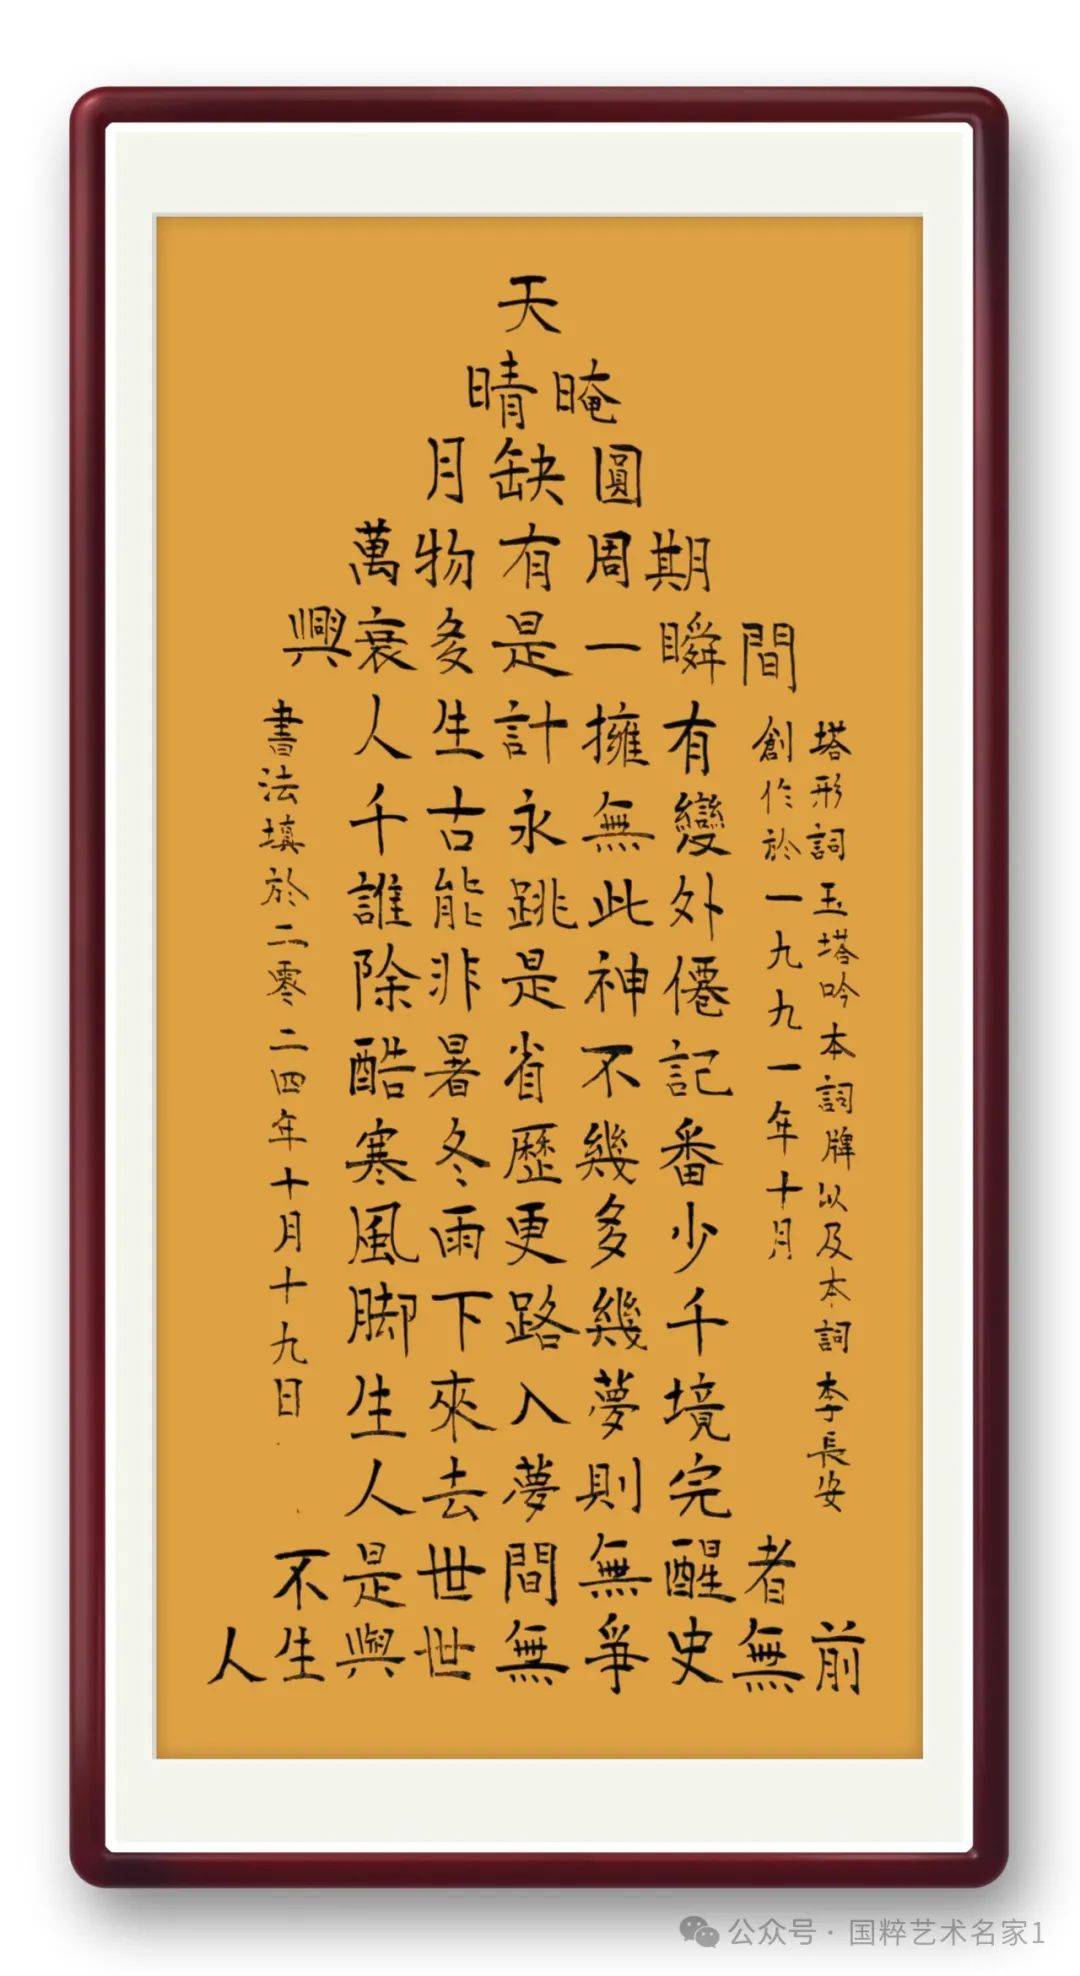 天
晴晻
月缺圓
萬物有周期
興衰多是一瞬間
人生計擁有
千古永無變
誰能跳此外
除非是神僊
酷暑省不記
寒冬歷幾番
風雨更多少
腳下路幾千
生來入夢境
人去夢則完
不是世間無醒者
人生與世無爭史無前
塔形詞 玉塔吟 本詞牌以及本詞 李長安
創作於一九九一年十月
書法填於二零二四年十月十九日
公众号 · 国粹艺术名家1